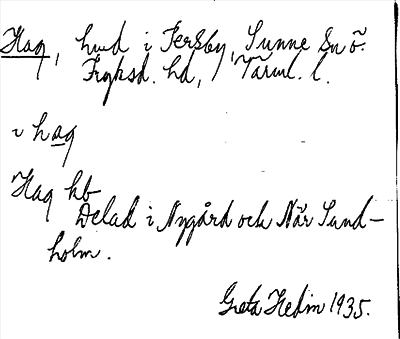 Hag, hmd i Jersby, Sunne Snö.
Fryksd. hd, Värml. l.
i hag
Hag kb
Delad i Nygård och När Sund-
holm.
Greta Hedin 1935.